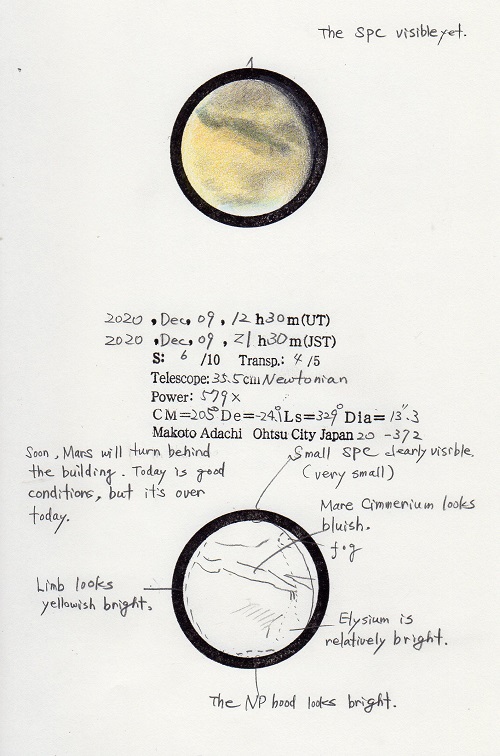 The SPC visible yet.
2020, Dec, 09, 12 h30m(UT)
2020, Dec, 09, 21 h30m(JST)
S: 6 /10 Transp.: 4 /5
Telescope: 35.5cm Newtonian
Power: 579×
CM=205° De=-24.°1 Ls=329° Dia= 13".3
Makoto Adachi Ohtsu City Japan 20 -372
Soon, Mars will turn behind
the building. Today is good
conditions, but it's over
today.
Small SPC clearly visible.
(very small)
Mare Cimmerium looks
bluish.
fog
Limb looks
yellowish bright.
Elysium is
relatively bright.
The NP hood looks bright.